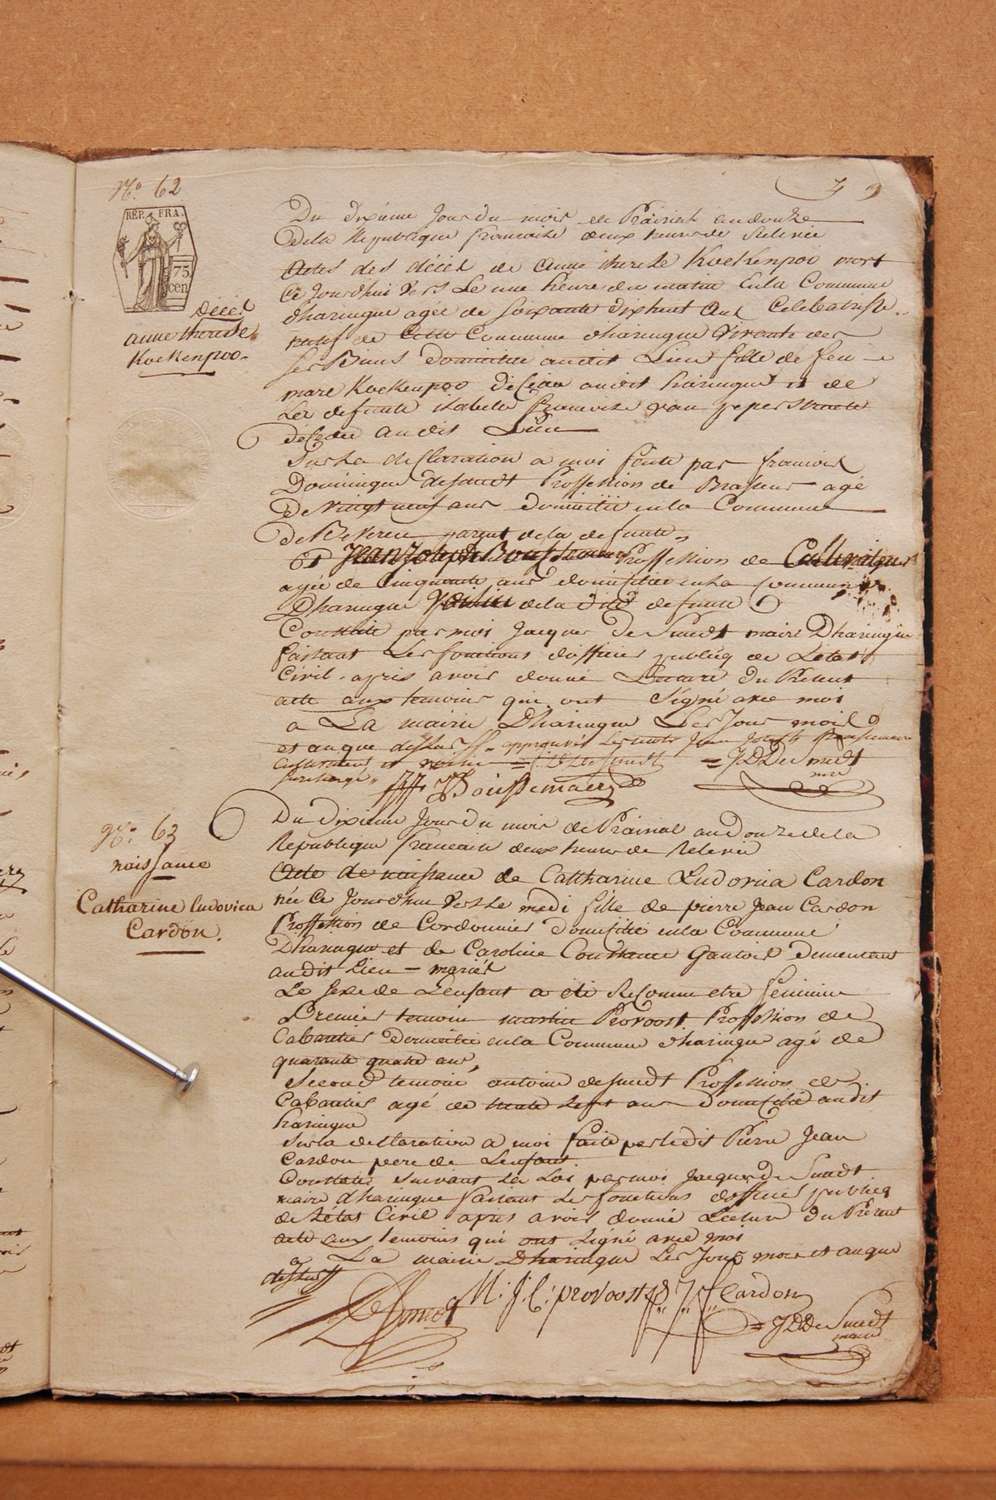 No. 62
REP. FRA.
75
cen
décès
anne therese
Kockenpoo
Du dixieme Jour du mois de Prairial an douze
de la Republique francaise deux heure de Relevée
Actes des décès de anne therese Kockenpoo mort
Ce Jourdhui vers Le une heure du matin En la Commune
dharingue agée de Soixante dixhuit ans Celebataire
natif de Cette Commune dharingue vivante des
ses Biens domiciliée audit Lieu fille de feu
mare Kockenpoo décédé audit haringue et de
Les defunte isabelle francoise van
décédée audit Lieu
Sur La declaration a moi faite par francois
Dominique desmedt Proffession de Brasseur agé
de vingt neuf ans domicilié en la Commune
de Beveren parent de la defunte
Et Jean Joseph Bousemaere Proffession de Cultivateur
agée de Cinquante ans domicilié en la Commune
Dharingue Voisin de la dite defunte
Constaté par moi Jacques De Smedt maire Dharingue
faisant Les fonctions dofficier publicq de Letat
Civil, après avoir donné Lecture du Present
acte aux temoins qui ont Signé avec moi
a La mairie Dharingue Les Jour mois
et an que dessus approuvés Les mots Jean Joseph Bousemaere
Cultivateur et voisin
surcharge
= JDDeSmedt
maire
JJ Bousemaere
No. 63
naissance
Catharine Ludovica
Cardon.
Du dixieme Jour du mois de Prairial an Douze de la
Republique francaise deux heure de Relevée
Acte de naissance de Catharine Ludovica Cardon
née Ce Jourdhui vers Le medi fille de pierre Jean Cardon
Proffession de Cordonnier domicilié en la Commune
Dharingue et de Caroline Constance Gantois demeurant
audit Lieu - mariés
Le sexe de Lenfant a été Reconnu etre feminine
Premier temoin martin Provoost Proffession de
Cabaretier Domicilié en la Commune dharingue agé de
quarante quatre ans,
Second temoin antoine desmedt Proffession de
Cabaretier agé de trente sept ans Domicilié audit
haringue
Sur la declaration a moi faite par ledit Pierre Jean
Cardon pere de Lenfant
Constaté suivant La Loi par moi Jacques De Smedt
maire dharingue faisant Les fonctions dofficier publicq
de Letat Civil après avoir donné Lecture du Present
acte aux temoins qui ont Signé avec moi
a La mairie Dharingue Les Jour mois et an que
dessus
M: J: C: provoost
Cardon
= JDDe Smedt
maire